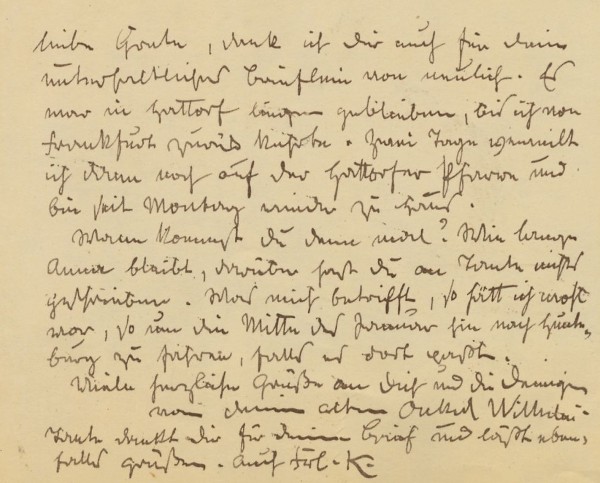 liebe Grete, dank ich dir auch für dein
unterhaltliches Brieflein von neulich. Es
war in Hattorf geblieben, bis ich von
Frankfurt zurück kehrte. Zwei Tage verweilt
ich dann noch auf der Hattorfer Pfarre und
bin seit Montag wieder zu Haus.
Wann kommst du denn mal? Wie lange
Anna bleibt, darüber hast du an Tante nichts
geschrieben. Was mich betrifft, so hätt ich wohl
vor, so um die Mitte des Januar hin nach Hunte-
burg zu fahren, falls es dort paßt.
Viele herzliche Grüße an dich und die Deinigen
von deinem alten Onkel Wilhelm.
Tante dankt dir für deinen Brief und läßt eben-
falls grüßen. Auch Frl. K.